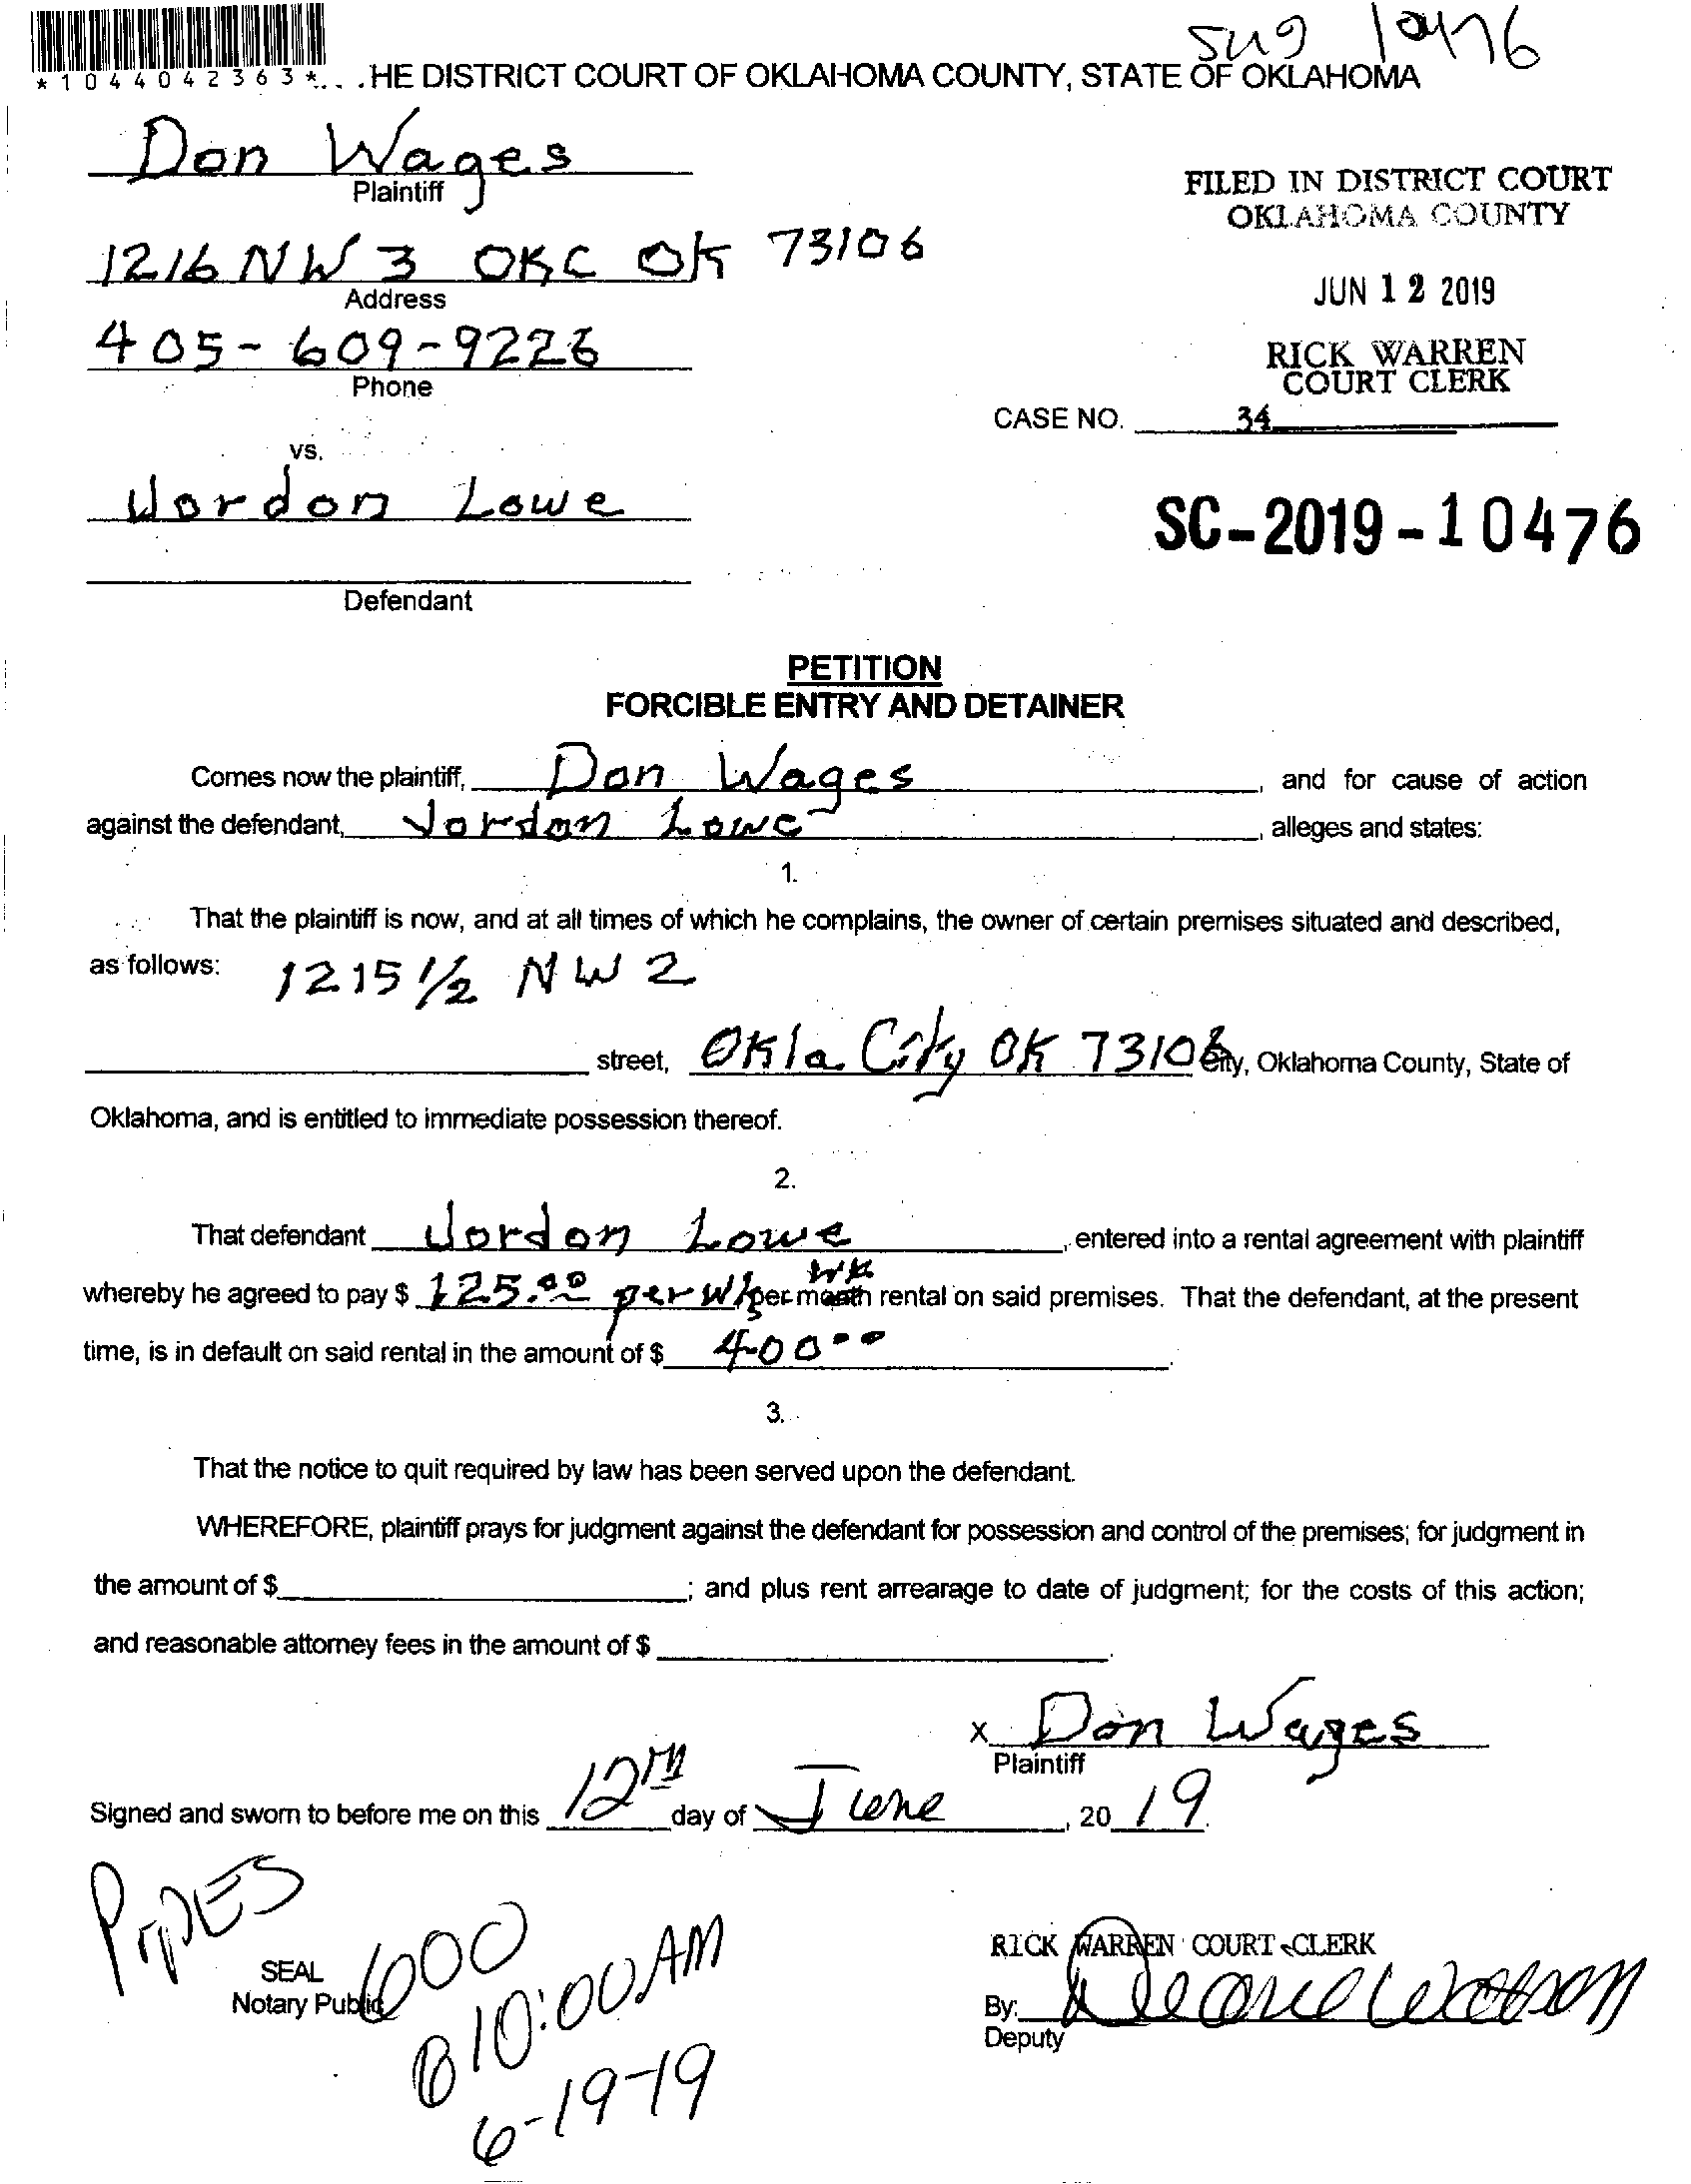 SU9 10476
*1044042363*... .HE DISTRICT COURT OF OKLAHOMA COUNTY, STATE OF OKLAHOMA
Don Wages
Plaintiff
FILED IN DISTRICT COURT
OKLAHOMA COUNTY
1216 NW 3 OKC OK 73106
Address
JUN 12 2019
405-609-9226
Phone
RICK WARREN
COURT CLERK
CASE NO. 34
vs.
Jordon Lowe
SC-2019-10476
Defendant
PETITION
FORCIBLE ENTRY AND DETAINER
Comes now the plaintiff, Don Wages, and for cause of action
against the defendant, Jordon Lowe, alleges and states:
1.
That the plaintiff is now, and at all times of which he complains, the owner of certain premises situated and described,
as follows: 1215 1/2 NW 2
street, Okla City OK 73106 City, Oklahoma County, State of
Oklahoma, and is entitled to immediate possession thereof.
2.
That defendant Jordon Lowe, entered into a rental agreement with plaintiff
wk
whereby he agreed to pay $ 125.00 per wk per month rental on said premises. That the defendant, at the present
time, is in default on said rental in the amount of $ 400 00.
3.
That the notice to quit required by law has been served upon the defendant.
WHEREFORE, plaintiff prays for judgment against the defendant for possession and control of the premises; for judgment in
the amount of $ ; and plus rent arrearage to date of judgment; for the costs of this action;
and reasonable attorney fees in the amount of $ .
x Don Wages
Plaintiff
Signed and sworn to before me on this 12th day of June, 20 19.
SEAL
Notary Public
600
@ 10:00 AM
6-19-19
RICK WARREN COURT CLERK
By:
Deputy